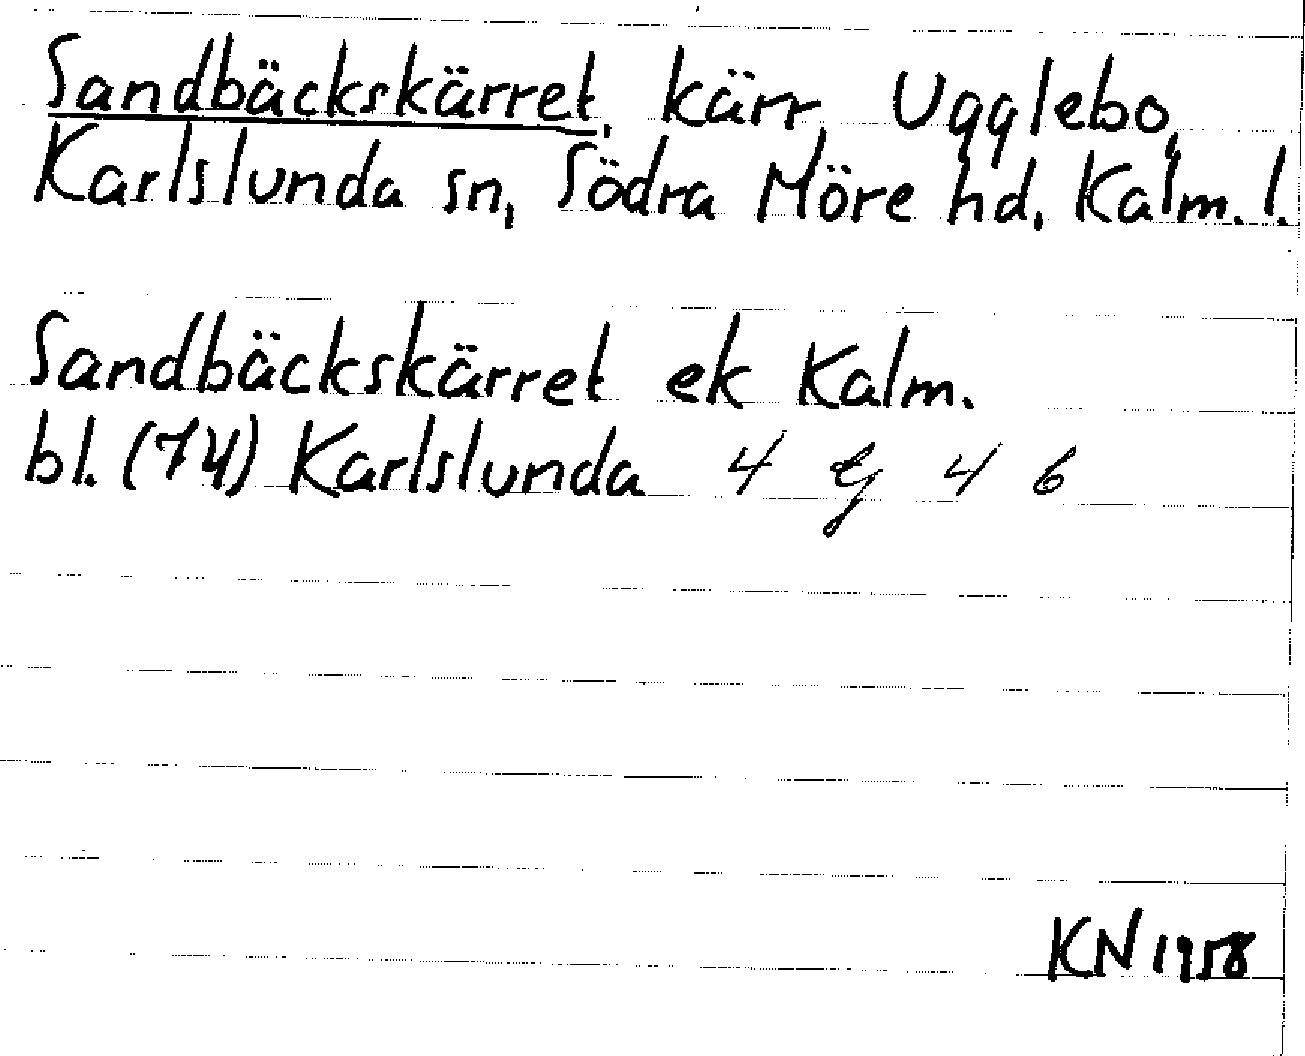 Sandbäckskärret, kärr, Ugglebo,
Karlslunda sn, Södra Möre hd, Kalm. l.
Sandbäckskärret ek Kalm.
bl. (74) Karlslunda 4 G 4 6
KN 1958